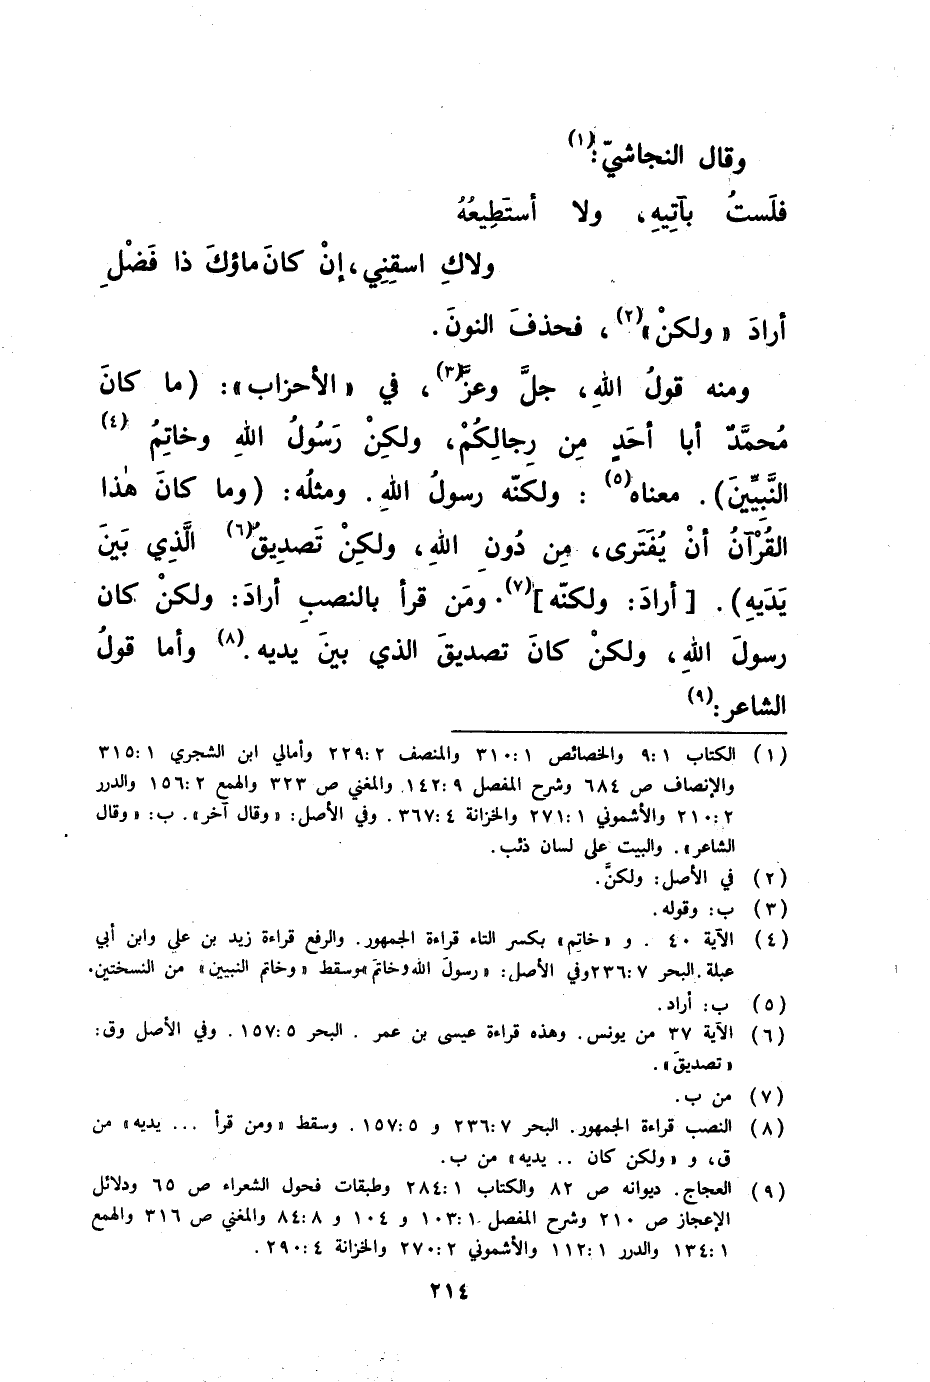 وقال النجاشيّ:(١)
فلَستُ بآتِيهِ، ولا أستَطِيعُهُ
ولاكِ اسقِنِي، إنْ كانَ ماؤكَ ذا فَضْلِ
أرادَ «ولكنْ»(٢)، فحذفَ النونَ.
ومنه قولُ اللهِ، جلَّ وعزَّ(٣)، في «الأحزاب»: (ما كانَ
مُحمَّدٌ أبا أحَدٍ مِن رِجالِكُمْ، ولكنْ رَسُولُ اللهِ وخاتِمُ (٤)
النَّبِيِّينَ). معناه(٥) : ولكنّه رسولُ اللهِ. ومثلُه: (وما كانَ هٰذا
القُرْآنُ أنْ يُفتَرى، مِن دُونِ اللهِ، ولكِنْ تَصديقُ(٦) الَّذِي بَينَ
يَدَيهِ). [أرادَ: ولكنّه](٧). ومَن قرأ بالنصبِ أرادَ: ولكنْ كان
رسولَ اللهِ، ولكنْ كانَ تصديقَ الذي بينَ يديه.(٨) وأما قولُ
الشاعر:(٩)
(١) الكتاب ٩:١ والخصائص ٣١٠:١ والمنصف ٢٢٩:٢ وأمالي ابن الشجري ٣١٥:١
والإنصاف ص ٦٨٤ وشرح المفصل ١٤٢:٩ والمغني ص ٣٢٣ والهمع ١٥٦:٢ والدرر
٢١٠:٢ والأشموني ٢٧١:١ والخزانة ٣٦٧:٤. وفي الأصل: «وقال آخر». ب: «وقال
الشاعر». والبيت على لسان ذئب.
(٢) في الأصل: ولكنَّ.
(٣) ب: وقوله.
(٤) الآية ٤٠ . و «خاتِم» بكسر التاء قراءة الجمهور. والرفع قراءة زيد بن علي وابن أبي
عبلة. البحر ٢٣٦:٧ وفي الأصل: «رسولَ الله وخاتمَ» وسقط «وخاتم النبيين» من النسختين.
(٥) ب: أراد.
(٦) الآية ٣٧ من يونس. وهذه قراءة عيسى بن عمر . البحر ١٥٧:٥. وفي الأصل وق:
«تصديقَ».
(٧) من ب.
(٨) النصب قراءة الجمهور. البحر ٢٣٦:٧ و ١٥٧:٥. وسقط «ومن قرأ ... يديه» من
ق، و «ولكن كان .. يديه» من ب.
(٩) العجاج. ديوانه ص ٨٢ والكتاب ٢٨٤:١ وطبقات فحول الشعراء ص ٦٥ ودلائل
الإعجاز ص ٢١٠ وشرح المفصل ١٠٣:١ و ١٠٤ و ٨٤:٨ والمغني ص ٣١٦ والهمع
١٣٤:١ والدرر ١١٢:١ والأشموني ٢٧٠:٢ والخزانة ٢٩٠:٤.
٢١٤